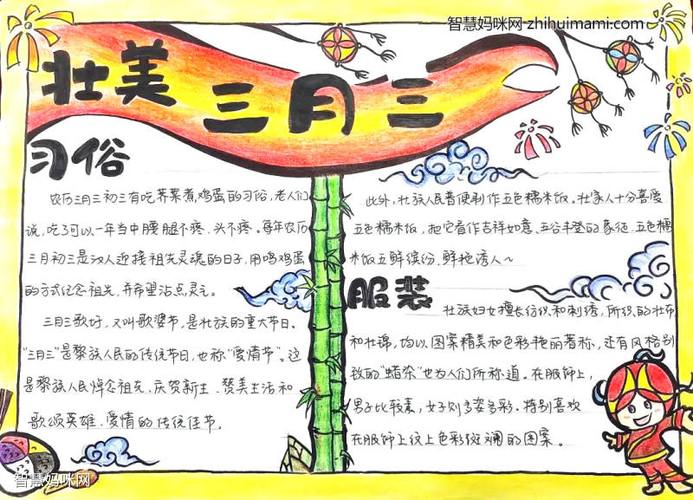 智慧妈咪网-zhihuimami.com
壮美 三月三
习俗
农历三月三初三有吃荠菜煮鸡蛋的习俗,老人们
说,吃了可以一年当中腰腿不疼、头不疼。每年农历
三月初三是汉人迎接祖先灵魂的日子,用鸣鸡蛋
的方式纪念祖先,并希望沾点灵气。
三月三歌好,又叫歌婆节,是壮族的重大节日。
"三月三"是黎族人民的传统节日,也称"爱情节"。这
是黎族人民悼念祖先、庆贺新生、赞美生活和
歌颂英雄、爱情的传统佳节。
此外,壮族人民着便制作五色糯米饭。壮家人十分喜爱
五色糯米饭,把它看作吉祥如意、五谷丰登的象征,五色糯
米饭五鲜缤纷,鲜艳诱人~
服装
壮族妇女擅长纺织和刺绣,所织的壮布
和壮锦,均以图案精美和色彩艳丽著称,还有风格别
致的"蜡染"也为人们所称道。在服饰上,
男子比较素,女子则多姿多彩。特别喜欢
在服饰上纹上色彩斑斓的图案。
智慧妈咪网